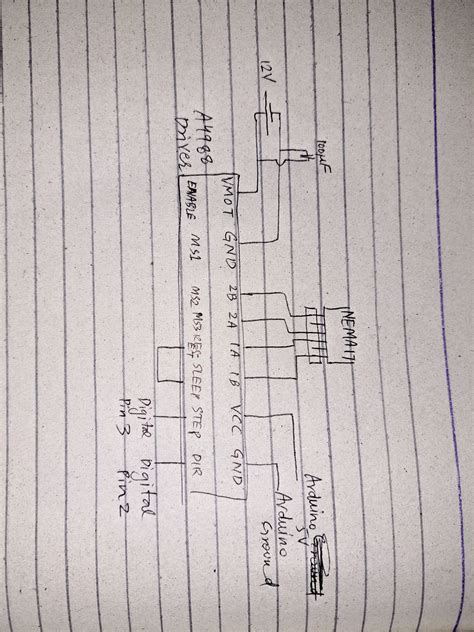 12V
100µF
NEMA17
A4988
Driver
VMOT GND 2B 2A 1A 1B VCC GND
ENABLE MS1 MS2 MS3 SLEEP STEP DIR
Arduino
5V
Arduino
Ground
Digital
Pin 3
Digital
Pin 2